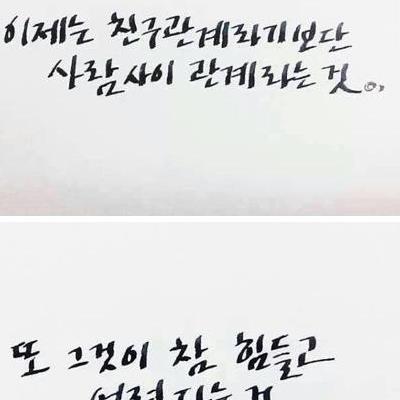 이제는 친구관계라기보단
사람사이 관계라는 것.
또 그것이 참 힘들고